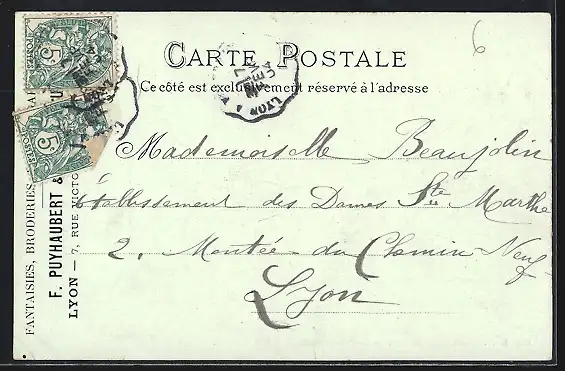 CARTE POSTALE
Ce côté est exclusivement réservé à l'adresse
6
Mademoiselle Beaujolin
Etablissement des Dames Ste Marthe
2. Montée du Chemin-Neuf
Lyon
FANTAISIES, BRODERIES,
F. PUYHAUBERT &
LYON — 7, RUE VICTO
5c
5c
LYON